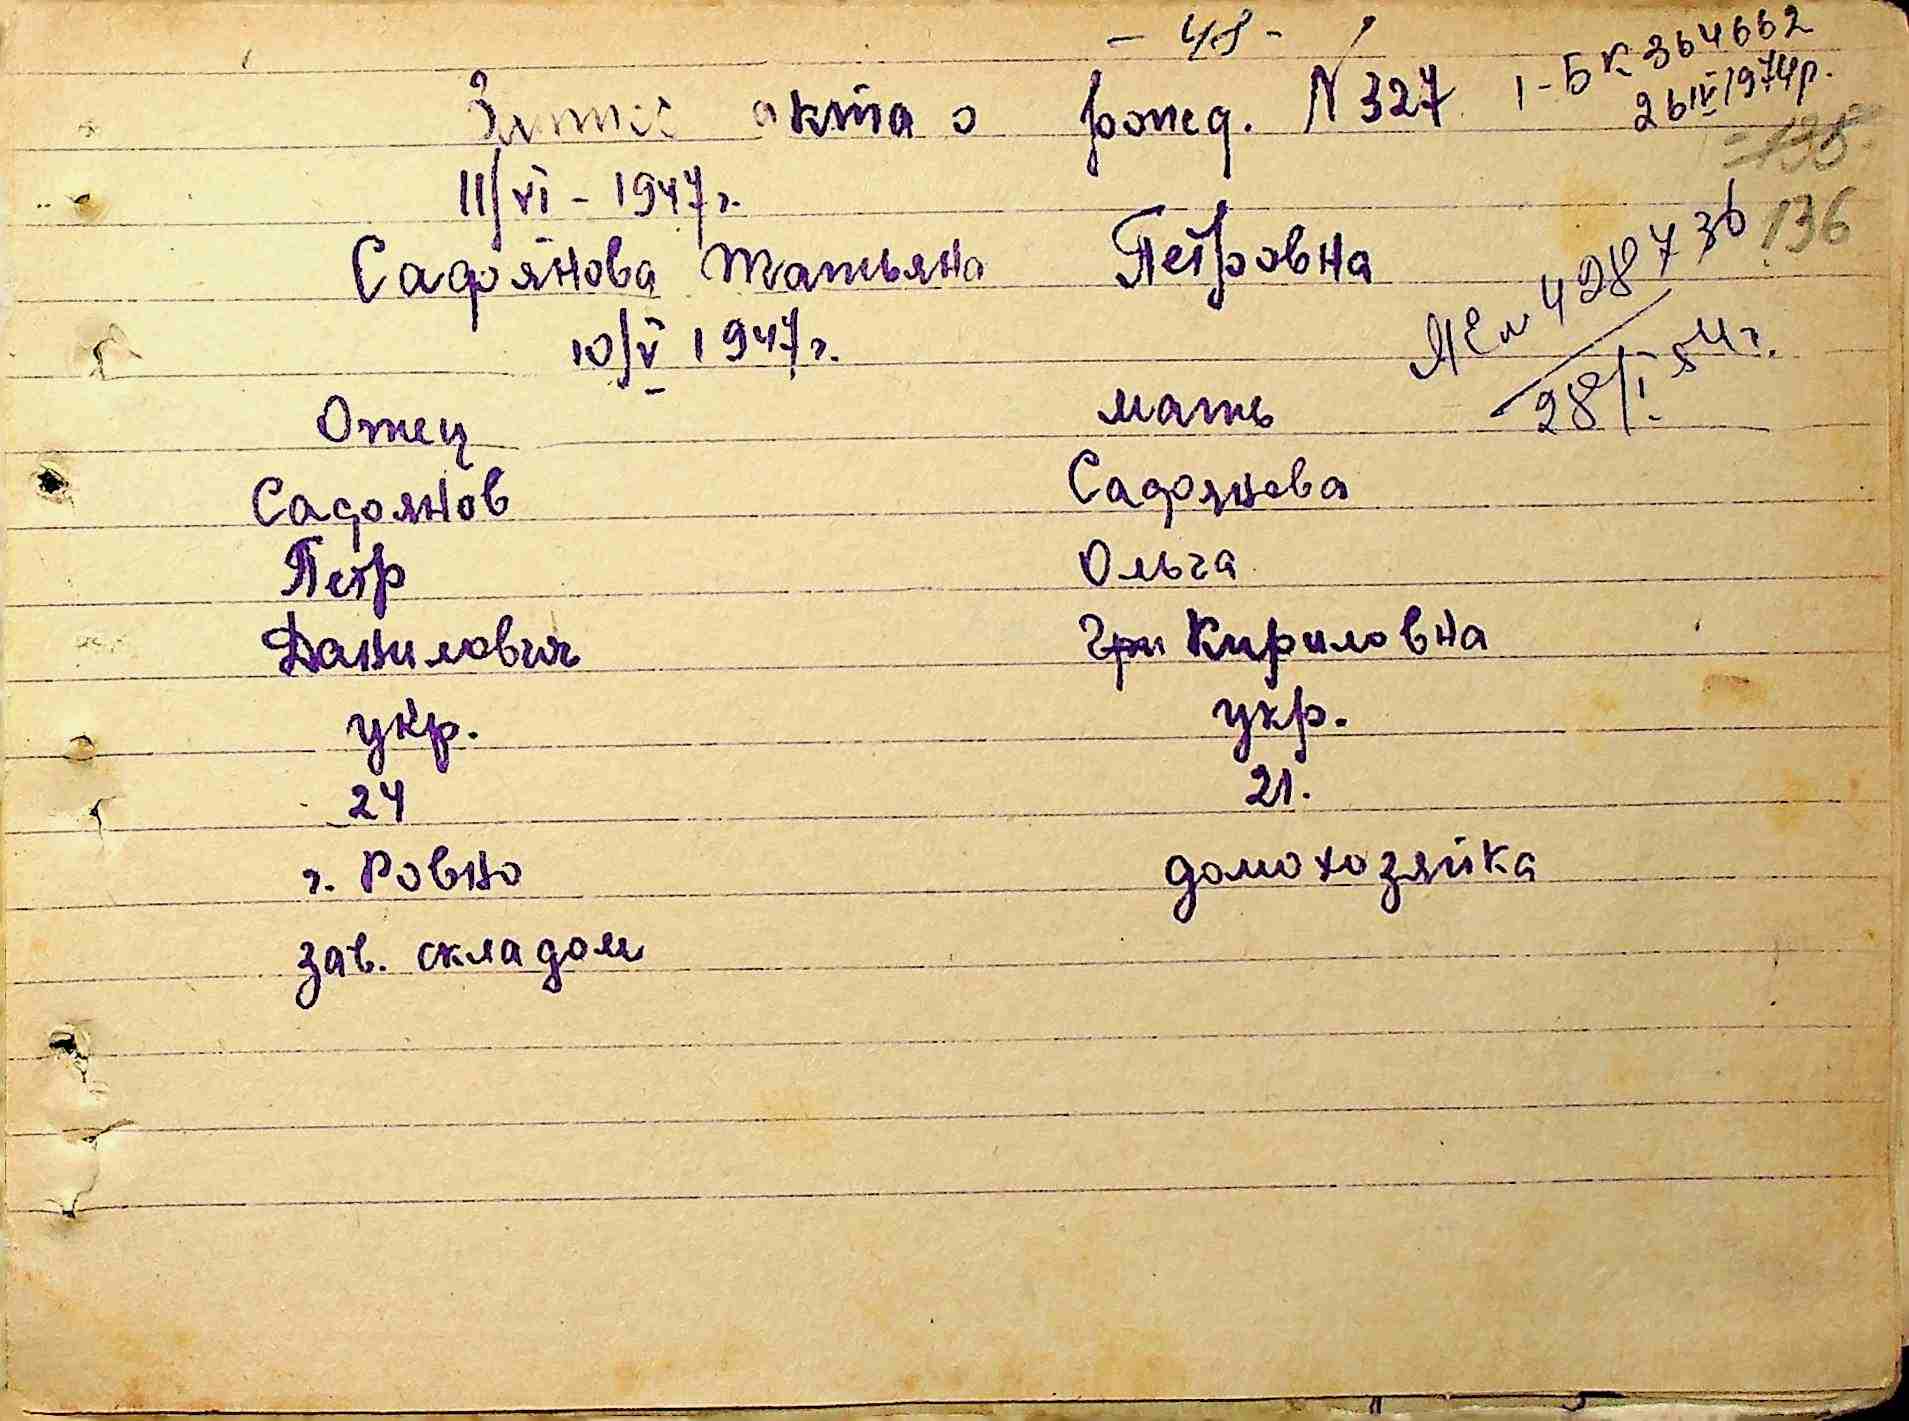 - 48 -
1-БК 364662
26 IV 1974р.
Запись акта о рожд. N 327
135
136
11/VI - 1947 г.
Садоянова Татьяна Петровна
10/V 1947 г.
ЯЕ № 428736
28/I 54 г.
Отец мать
Садоянов Садоянова
Петр Ольга
Данилович Гри Кириловна
укр. укр.
24 21.
г. Ровно домохозяйка
зав. складом